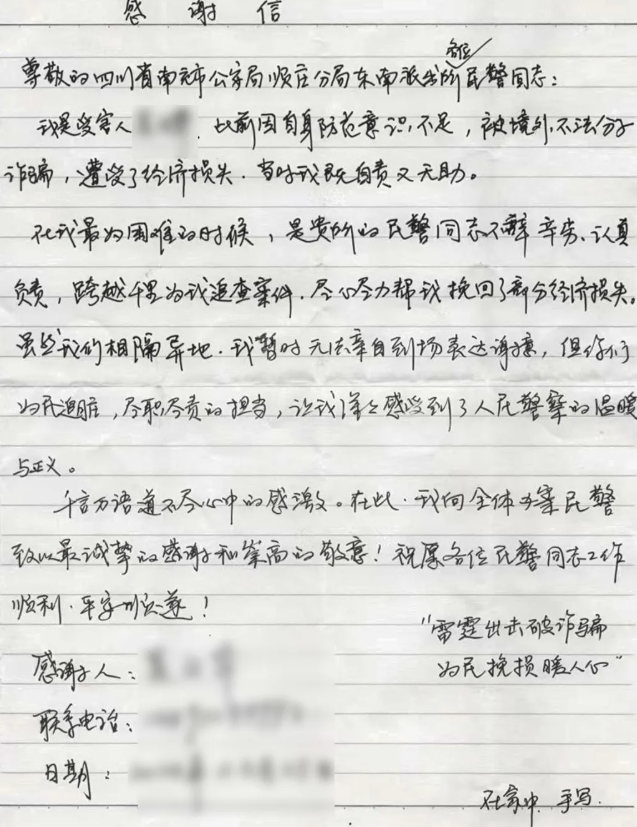 感 谢 信
各位
尊敬的四川省南充市公安局顺庄分局东南派出所民警同志：
我是受害人 ，此前因自身防范意识不足，被境外不法分子
诈骗，遭受了经济损失．当时我既自责又无助。
在我最为困难的时候，是贵所的民警同志不辞辛劳、认真
负责，跨越千里为我追查案件．尽心尽力帮我挽回了部分经济损失。
虽然我们相隔异地．我暂时无法亲自到场表达谢意，但你们
为民追赃，尽职尽责的担当，让我深深感受到了人民警察的温暖
与正义。
千言万语道不尽心中的感激。在此．我向全体办案民警
致以最诚挚的感谢和崇高的敬意！祝愿各位民警同志工作
顺利．平安顺遂！
“雷霆出击破诈骗
为民挽损暖人心”
感谢人：
联系电话：
日期：
手写